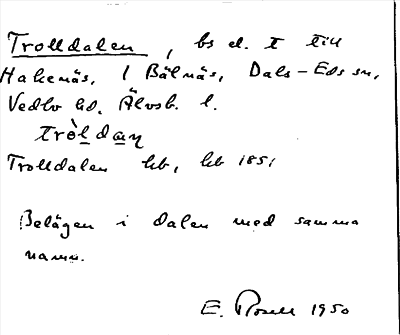 Trolldalen, bs el. t till
Hakenäs, l Bälnäs, Dals-Eds sn,
Vedbo hd. Älvsb. l.
tròldaṇ
Trolldalen hb, hb 1851
Belägen i dalen med samma
namn.
E. Rosell 1950